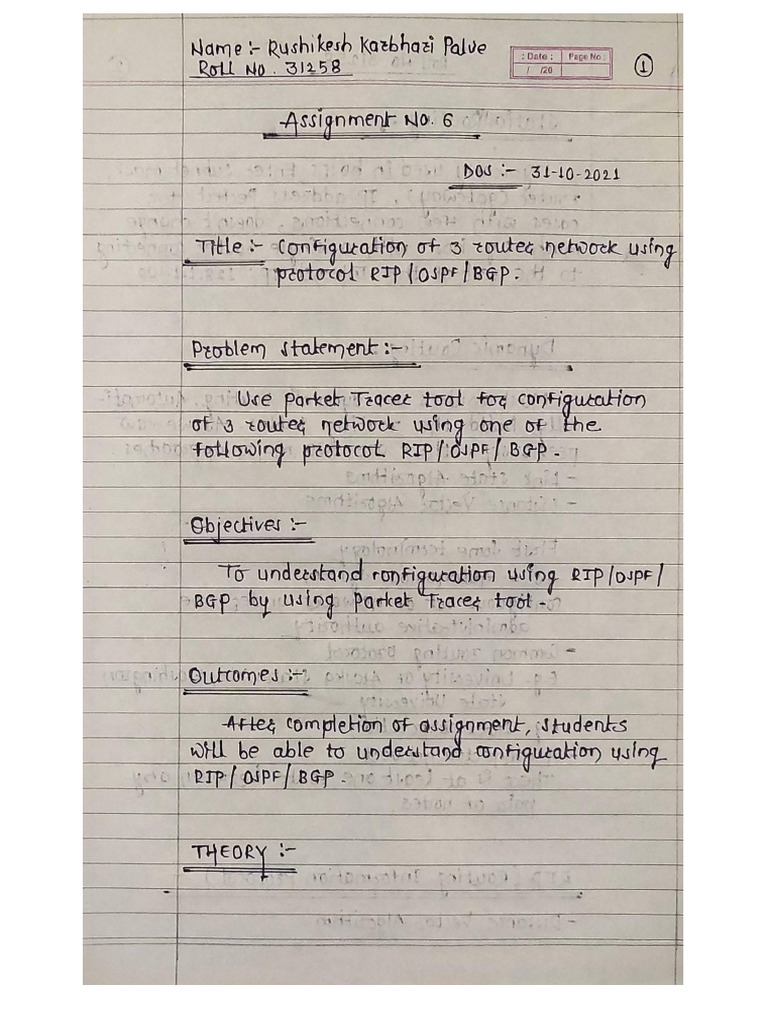 Name :- Rushikesh Karbhari Palve
Roll No. 31258
: Date : Page No :
/ /20
1
Assignment No. 6
DOS :- 31-10-2021
Title :- Configuration of 3 router network using
protocol RIP/OSPF/BGP.
Problem statement :-
Use Parket Tracer tool for configuration
of 3 router network using one of the
following protocol RIP/OSPF/BGP.
Objectives :-
To understand configuration using RIP/OSPF/
BGP by using Parket Tracer tool.
Outcomes :-
After completion of assignment, students
will be able to understand configuration using
RIP/OSPF/BGP.
THEORY :-